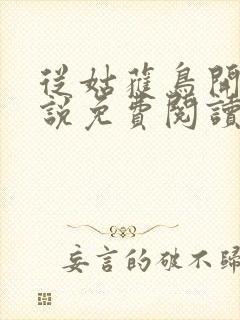 從姑蘿鳥開
說免費閱讀
妄言的破不歸